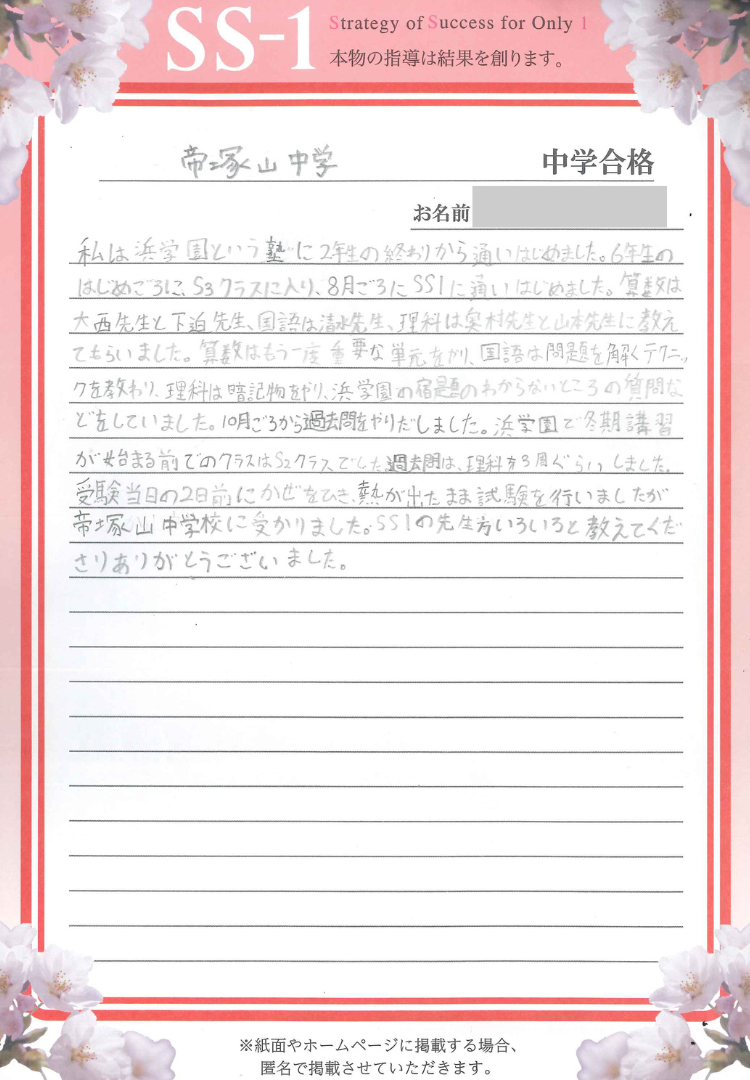 SS-1
Strategy of Success for Only 1
本物の指導は結果を創ります。
帝塚山中学 中学合格
お名前
私は浜学園という塾に2年生の終わりから通いはじめました。6年生の
はじめごろに、S3クラスに入り、8月ごろにSS1に通いはじめました。算数は
大西先生と下迫先生、国語は清水先生、理科は奥村先生と山本先生に教え
てもらいました。算数はもう一度重要な単元をやり、国語は問題を解くテクニッ
クを教わり、理科は暗記物をやり、浜学園の宿題のわからないところの質問な
どをしていました。10月ごろから過去問をやりだしました。浜学園で冬期講習
が始まる前でのクラスはS2クラスでした。過去問は、理科を3周ぐらいしました。
受験当日の2日前にかぜをひき、熱が出たまま試験を行いましたが
帝塚山中学校に受かりました。SS1の先生方いろいろと教えてくだ
さりありがとうございました。
※紙面やホームページに掲載する場合、
匿名で掲載させていただきます。